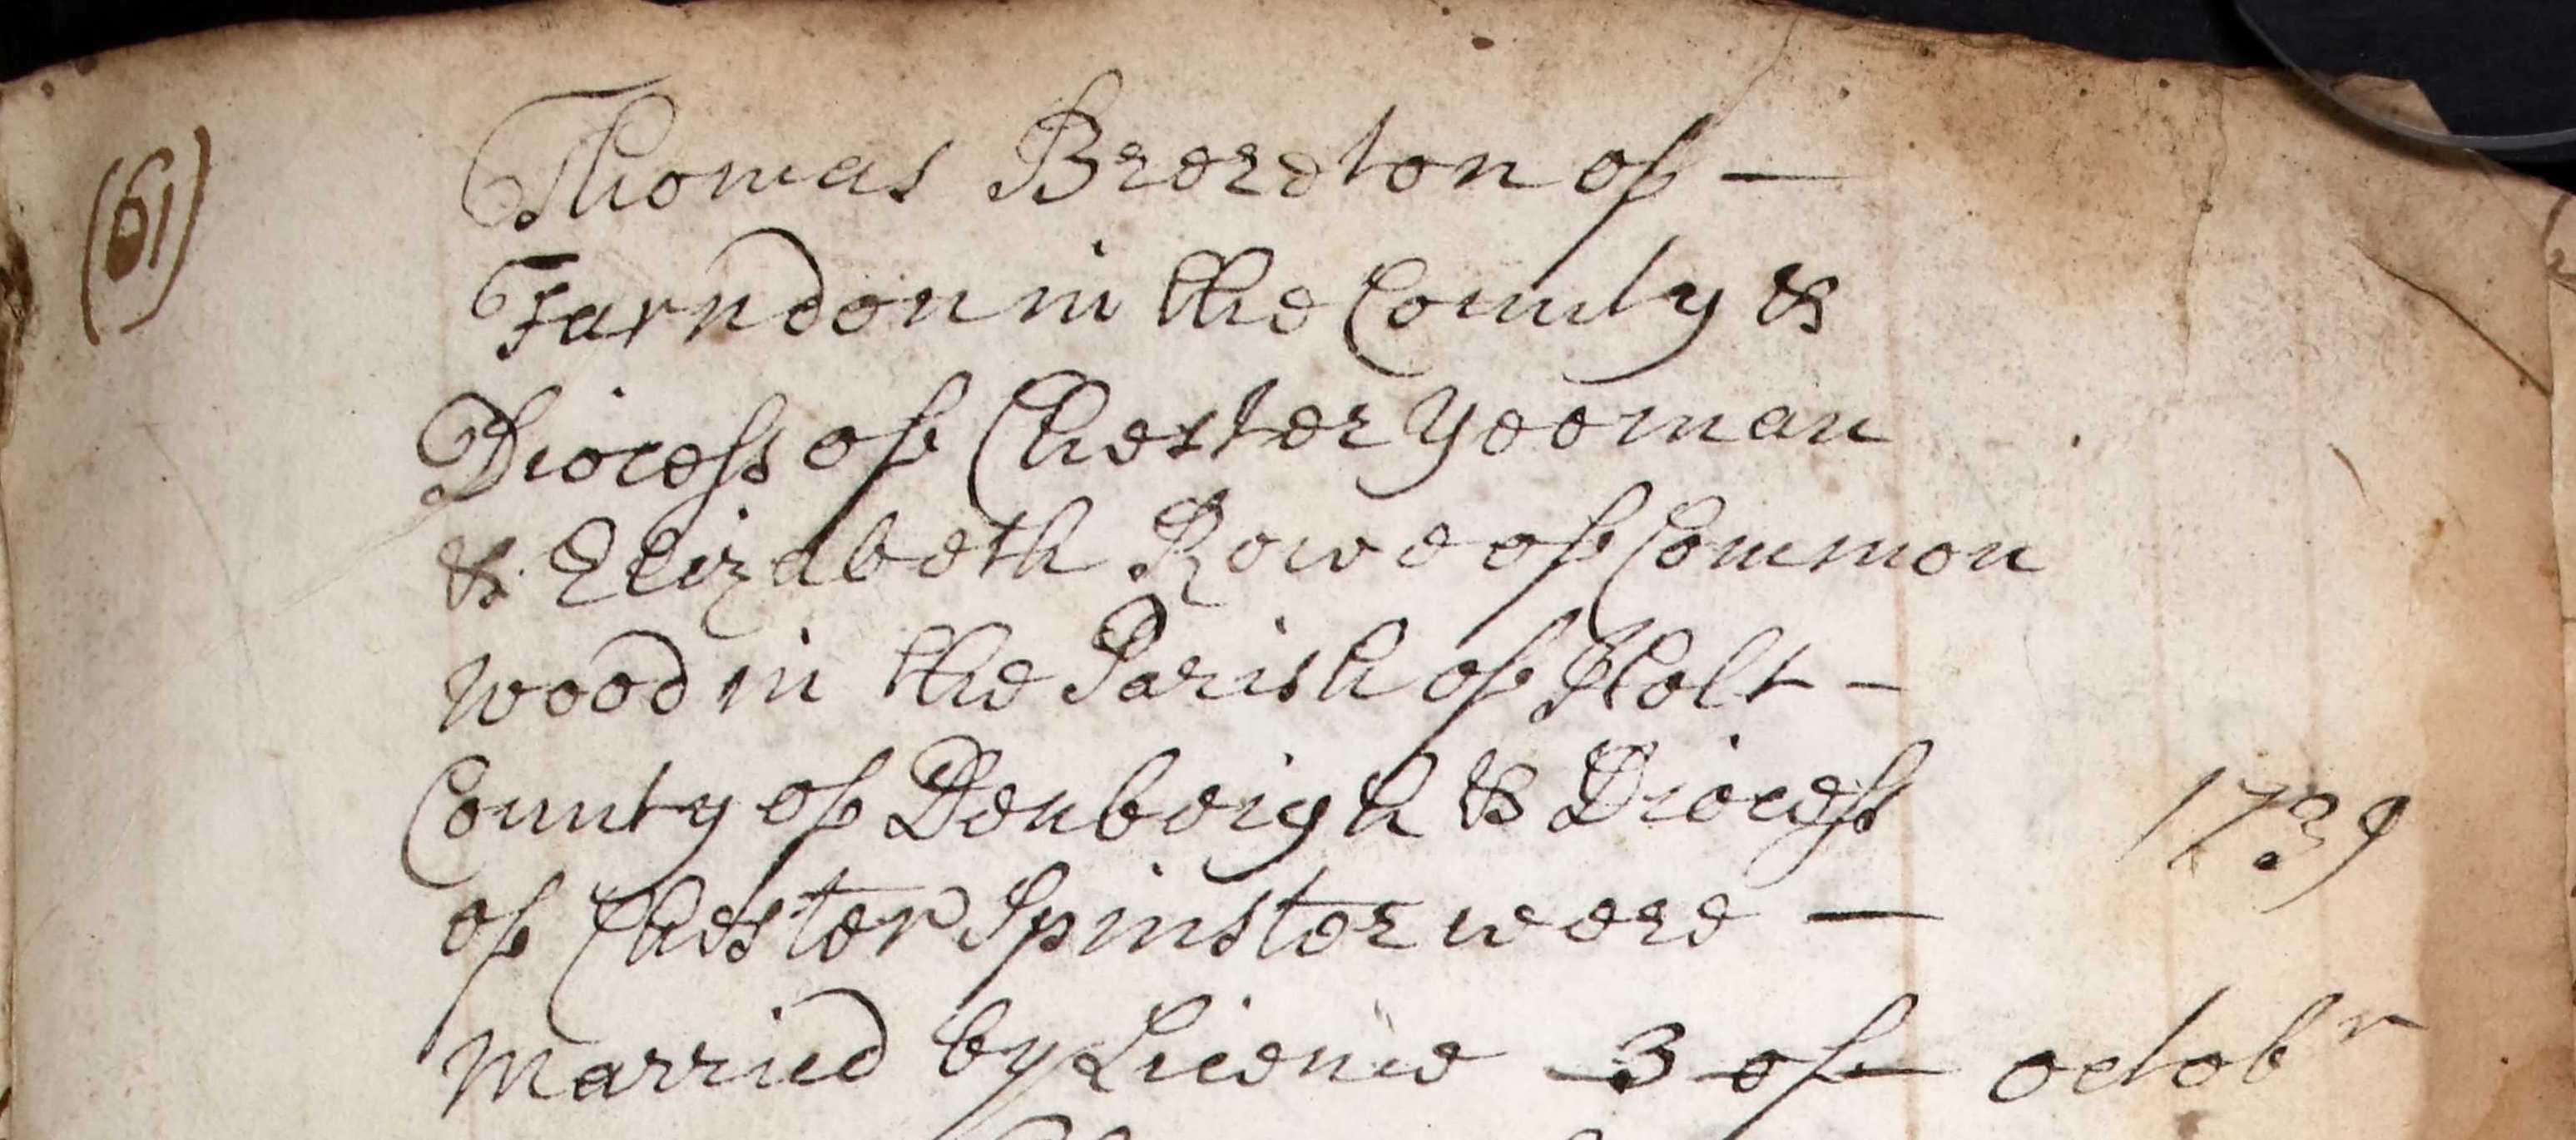 (61)
Thomas Brereton of —
Farndon in the County &
Diocess of Chester Yeoman
& Elizabeth Rowe of Common
wood in the Parish of Holt –
County of Denbeigh & Diocess
1739
of Chester Spinster were —
Married by Licence 3 of octobr